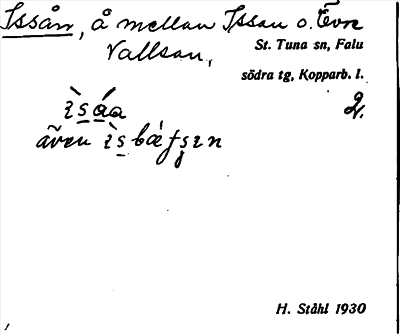 Issån, å mellan Issan o. Övre
Vallsan,
St. Tuna sn, Falu
södra tg, Kopparb. l.
2.
ìsáa
även
H. Ståhl 1930